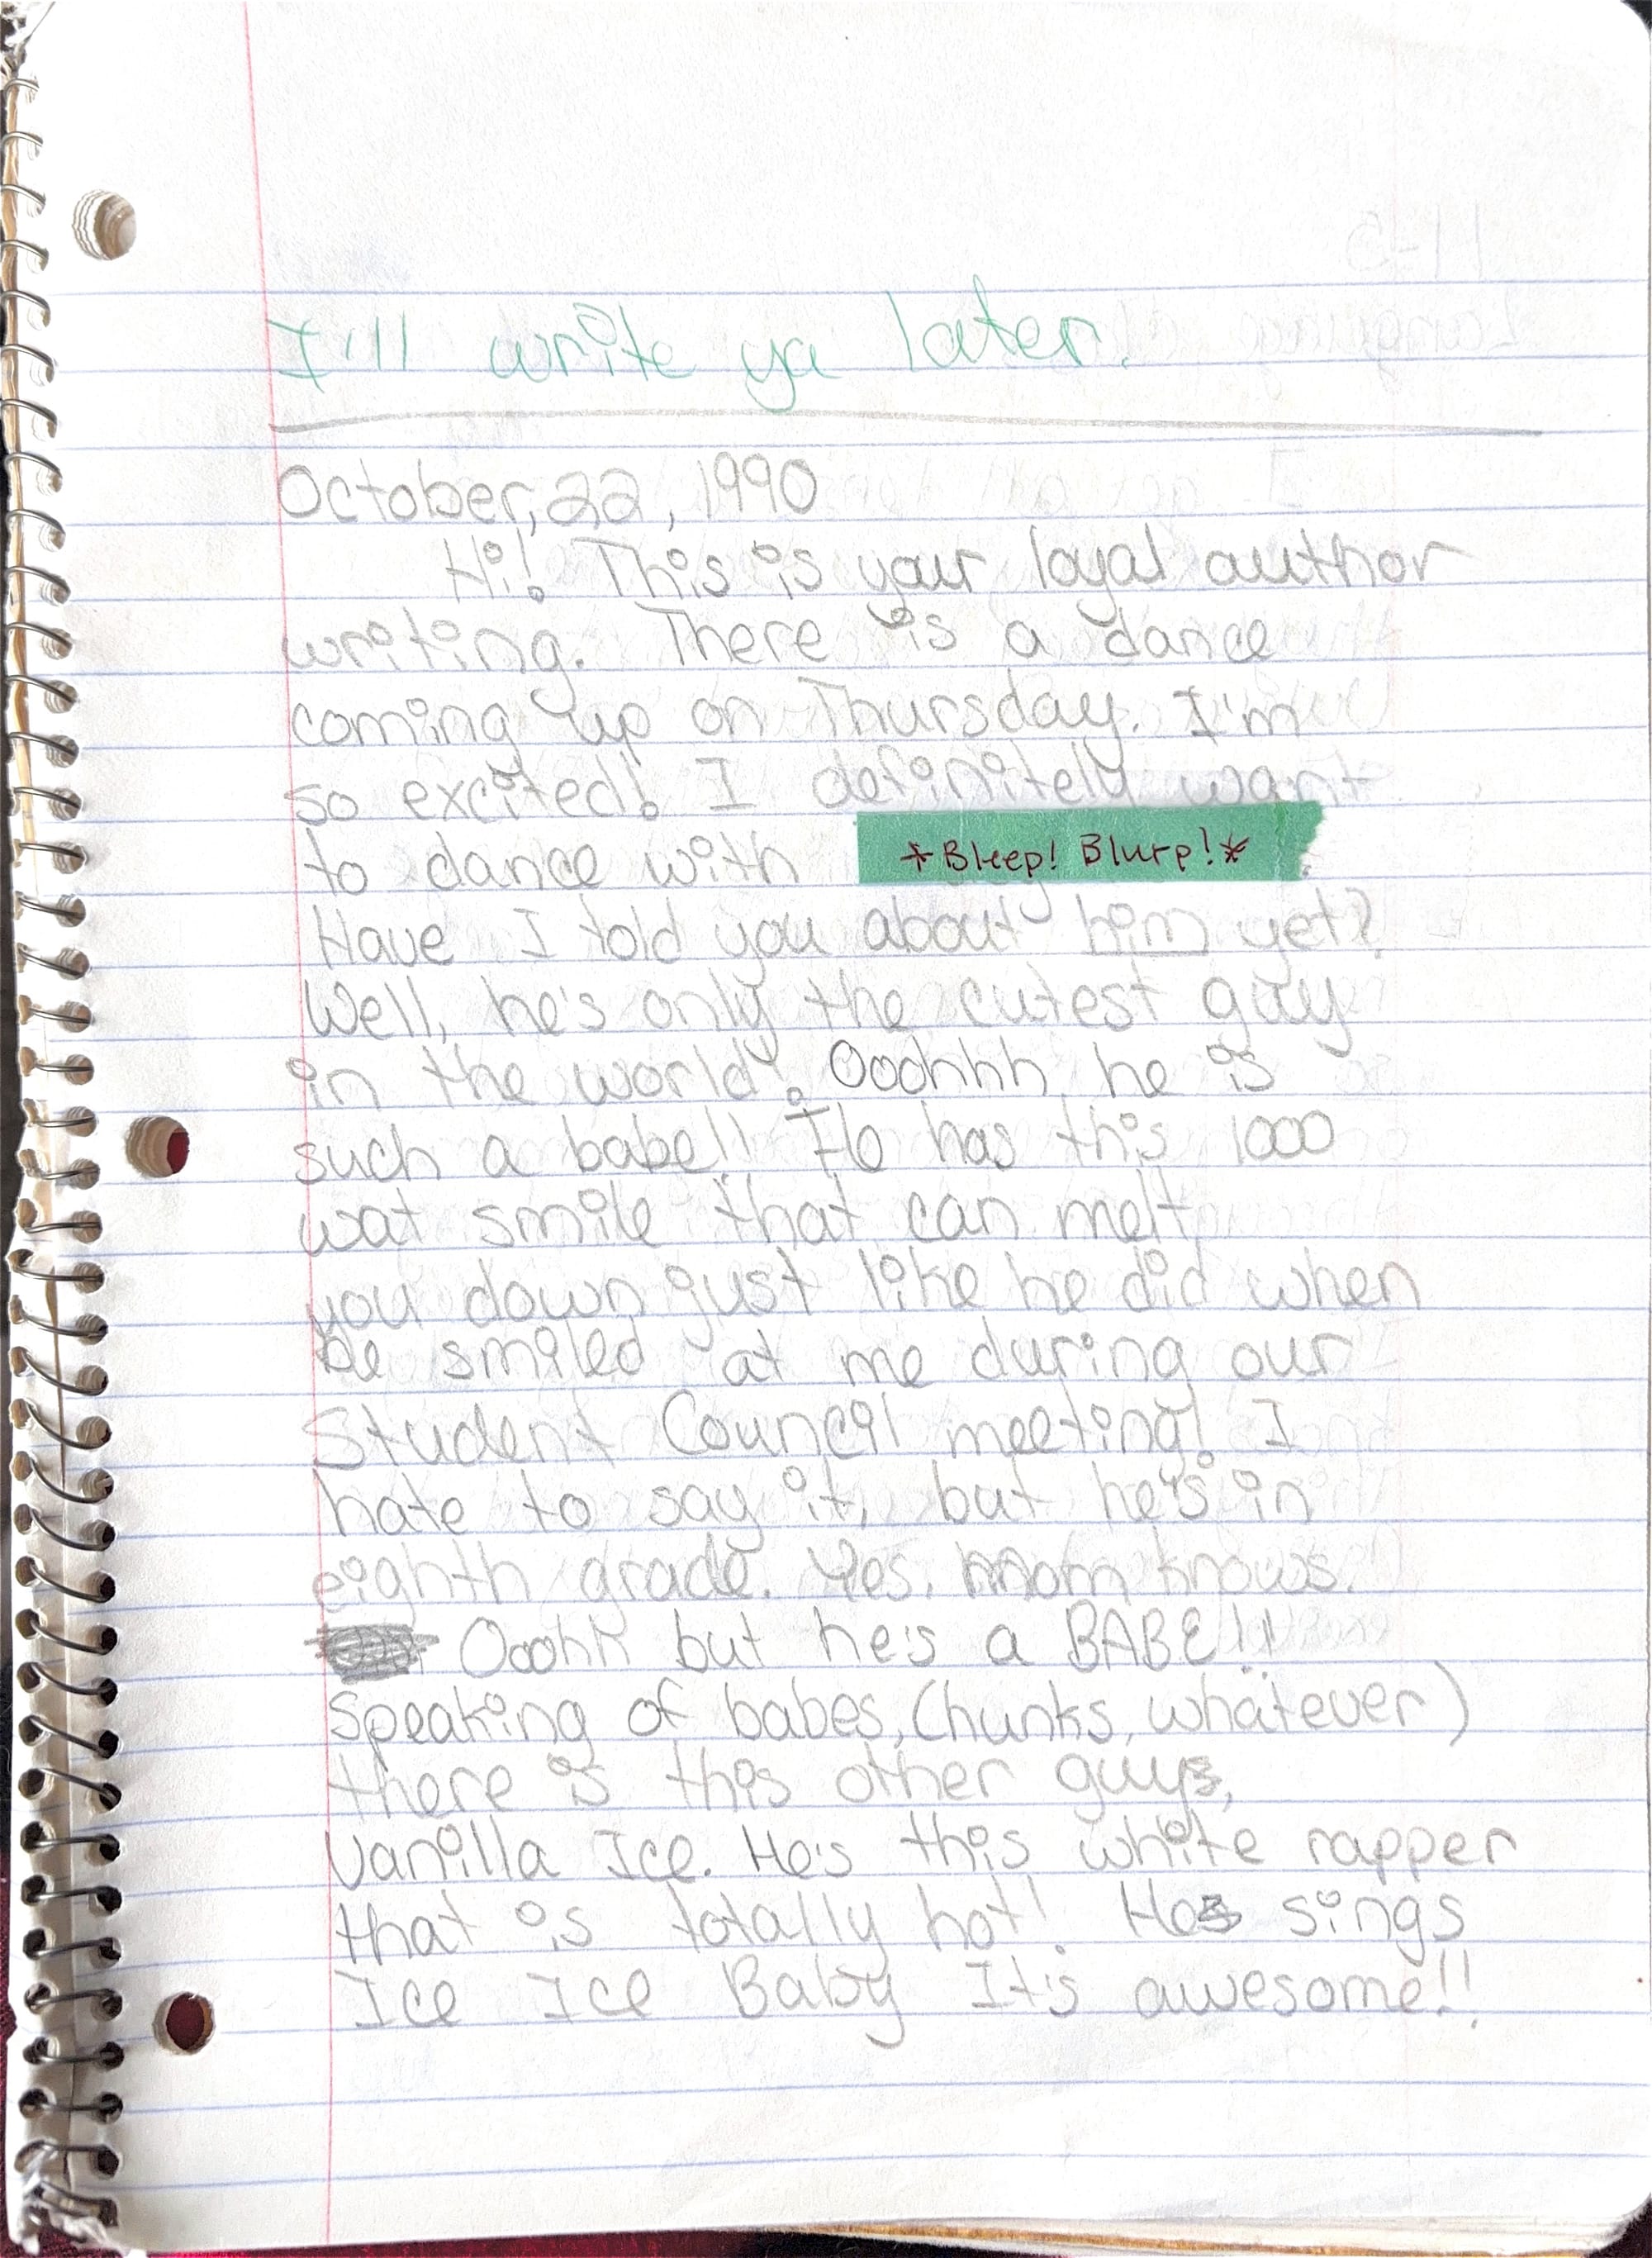 I'll write ya later.
October, 22, 1990
Hi! This is your loyal author
writing. There is a dance
coming up on Thursday. I'm
so excited! I definitely want
to dance with *Bleep! Blurp!*
Have I told you about him yet?
Well, he's only the cutest guy
in the world! Ooohhh, he is
such a babe!! He has this 1000
wat smile that can melt
you down just like he did when
he smiled at me during our
Student Council meeting! I
hate to say it, but he's in
eighth grade. Yes, mom knows.
Ooohh but he's a BABE!!
Speaking of babes, (hunks, whatever)
there is this other guy,
Vanilla Ice. He's this white rapper
that is totally hot! He sings
Ice Ice Baby It's awesome!!